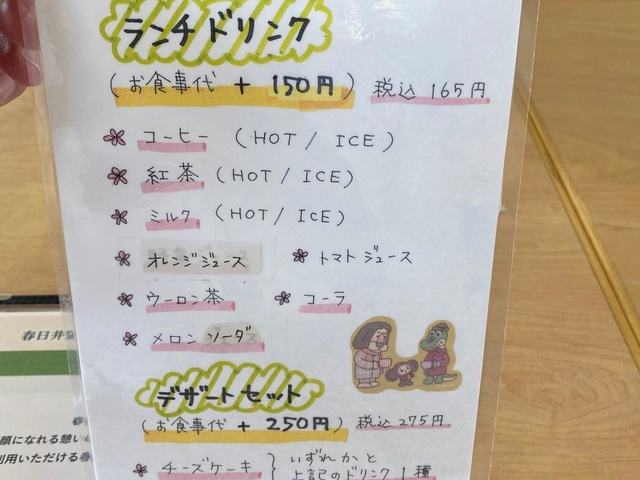 ランチドリンク
(お食事代 + 150円) 税込 165円
コーヒー (HOT / ICE)
紅茶 (HOT / ICE)
ミルク (HOT / ICE)
オレンジジュース トマトジュース
ウーロン茶 コーラ
メロンソーダ
デザートセット
(お食事代 + 250円) 税込 275円
チーズケーキ } いずれかと
上記のドリンク 1種
春日井
顔になれる憩い
利用いただける春